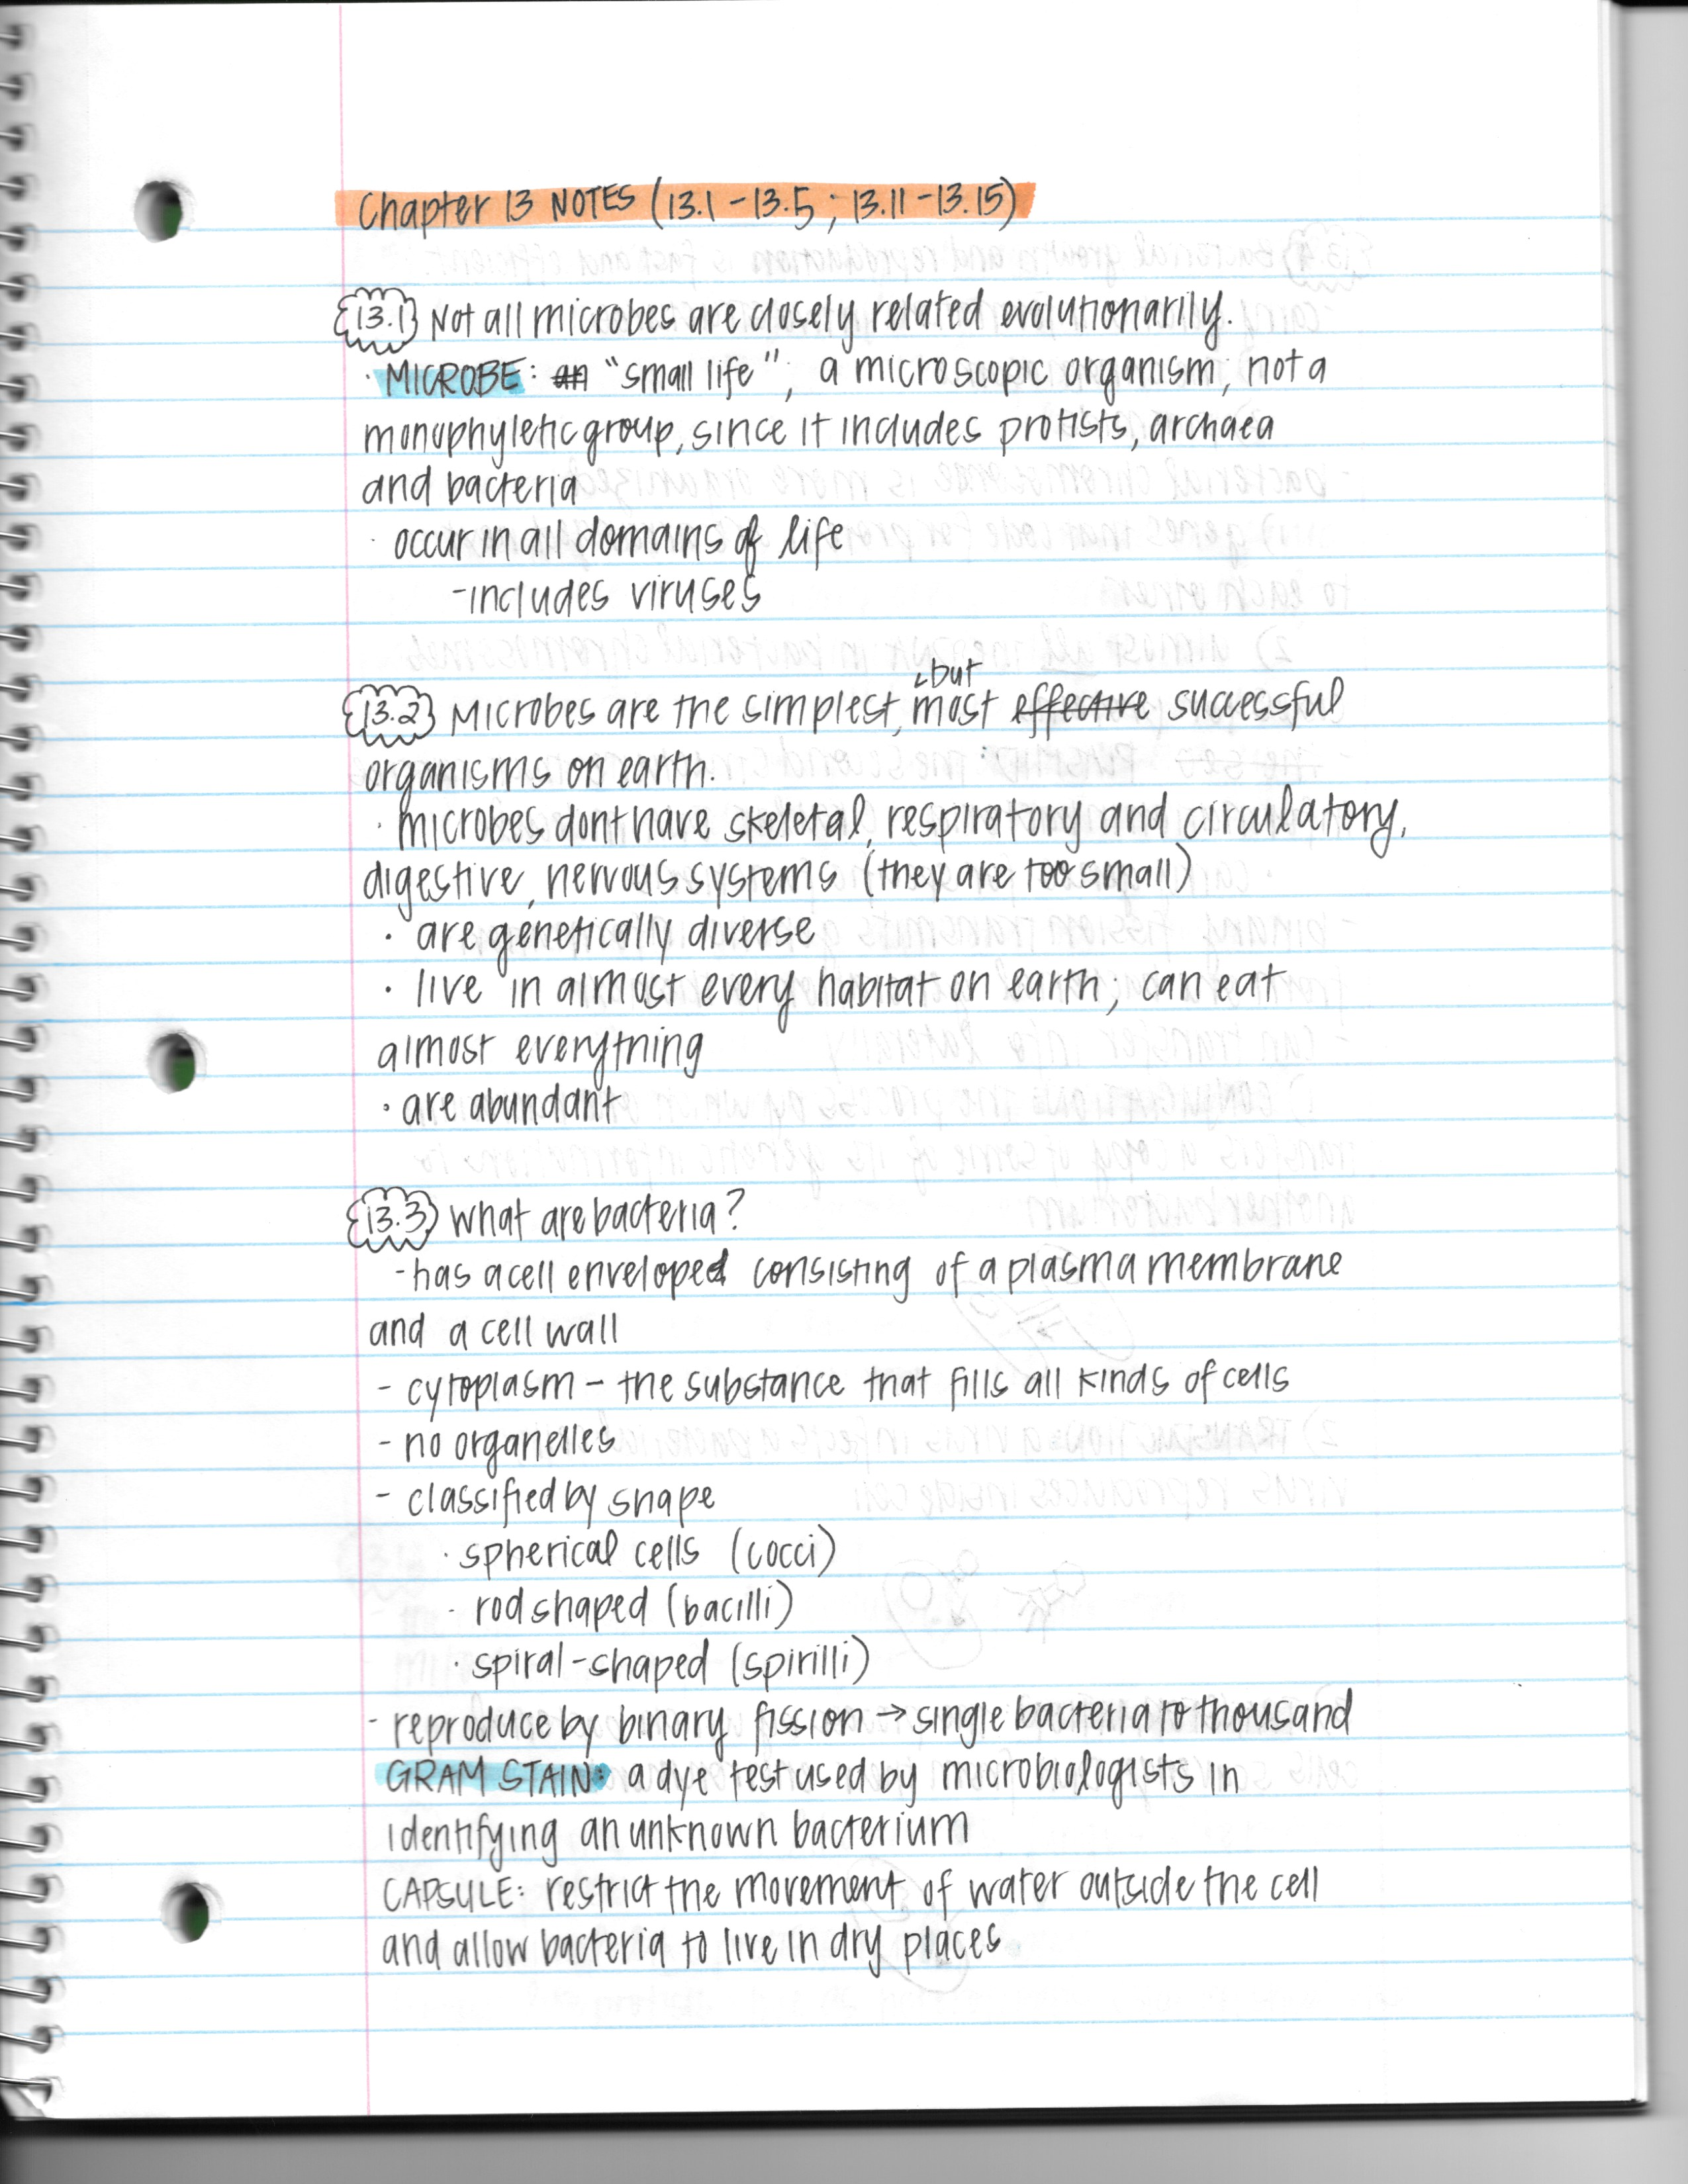 Chapter 13 NOTES (13.1-13.5; 13.11-13.15)
13.1 Not all microbes are closely related evolutionarily.
· MICROBE: an "small life"; a microscopic organism; not a
monophyletic group, since it includes protists, archaea
and bacteria
· occur in all domains of life
-includes viruses
but
13.2 Microbes are the simplest, most effective successful
organisms on earth.
· microbes dont have skeletal, respiratory and circulatory,
digestive, nervous systems (they are too small)
· are genetically diverse
· live in almost every habitat on earth; can eat
almost everything
· are abundant
13.3 What are bacteria?
-has a cell enveloped consisting of a plasma membrane
and a cell wall
- cytoplasm - the substance that fills all kinds of cells
- no organelles
- classified by shape
· spherical cells (cocci)
· rod shaped (bacilli)
· spiral-shaped (spirilli)
- reproduce by binary fission → single bacteria to thousand
GRAM STAIN: a dye test used by microbiologists in
identifying an unknown bacterium
CAPSULE: restrict the movement of water outside the cell
and allow bacteria to live in dry places